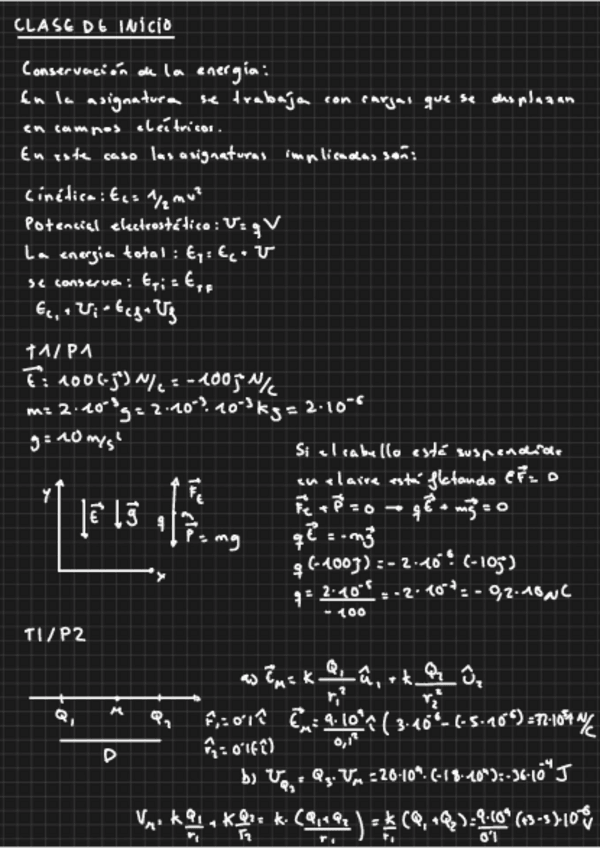 CLASE DE INICIO
Conservación de la energía:
En la asignatura se trabaja con cargas que se desplazan
en campos eléctricos.
En este caso las asignaturas implicadas son:
Cinética: Ec = 1/2 mv²
Potencial electrostático: U = qV
La energía total: ET = Ec + U
se conserva: ETi = ETF
Eci + Ui = Ecf + Uf
T1/P1
E⃗ = 100(-j⃗) N/C = -100j⃗ N/C
m = 2·10⁻³g = 2·10⁻³·10⁻³kg = 2·10⁻⁶
g = 10 m/s²
Si el cabello está suspendido
en el aire está flotando ΣF⃗ = 0
F⃗E + P⃗ = 0 → qE⃗ + mg⃗ = 0
qE⃗ = -mg⃗
q(-100j) = -2·10⁻⁶·(-10j)
q = 2·10⁻⁵ / -100 = -2·10⁻⁷ = -0,2·10 NC
Y E⃗ g⃗ F⃗E q P⃗ = mg
X
T1/P2
a) E⃗M = k Q₁/r₁² û₁ + k Q₂/r₂² û₂
Q₁ M Q₂ r̂₁ = 0'1 î E⃗M = 9·10⁹/0,1² î (3·10⁻⁶ - (-5·10⁻⁶) = 72·10⁵ N/C
D r̂₂ = 0'1(-î)
b) UQ₃ = Q₃·VM = 20·10⁻⁹·(-18·10⁴) = -36·10⁻⁴ J
VM = k Q₁/r₁ + k Q₂/r₂ = k·(Q₁+Q₂/r₁) = k/r₁ (Q₁+Q₂) = 9·10⁹/0'1 (+3-5)·10⁻⁶ V